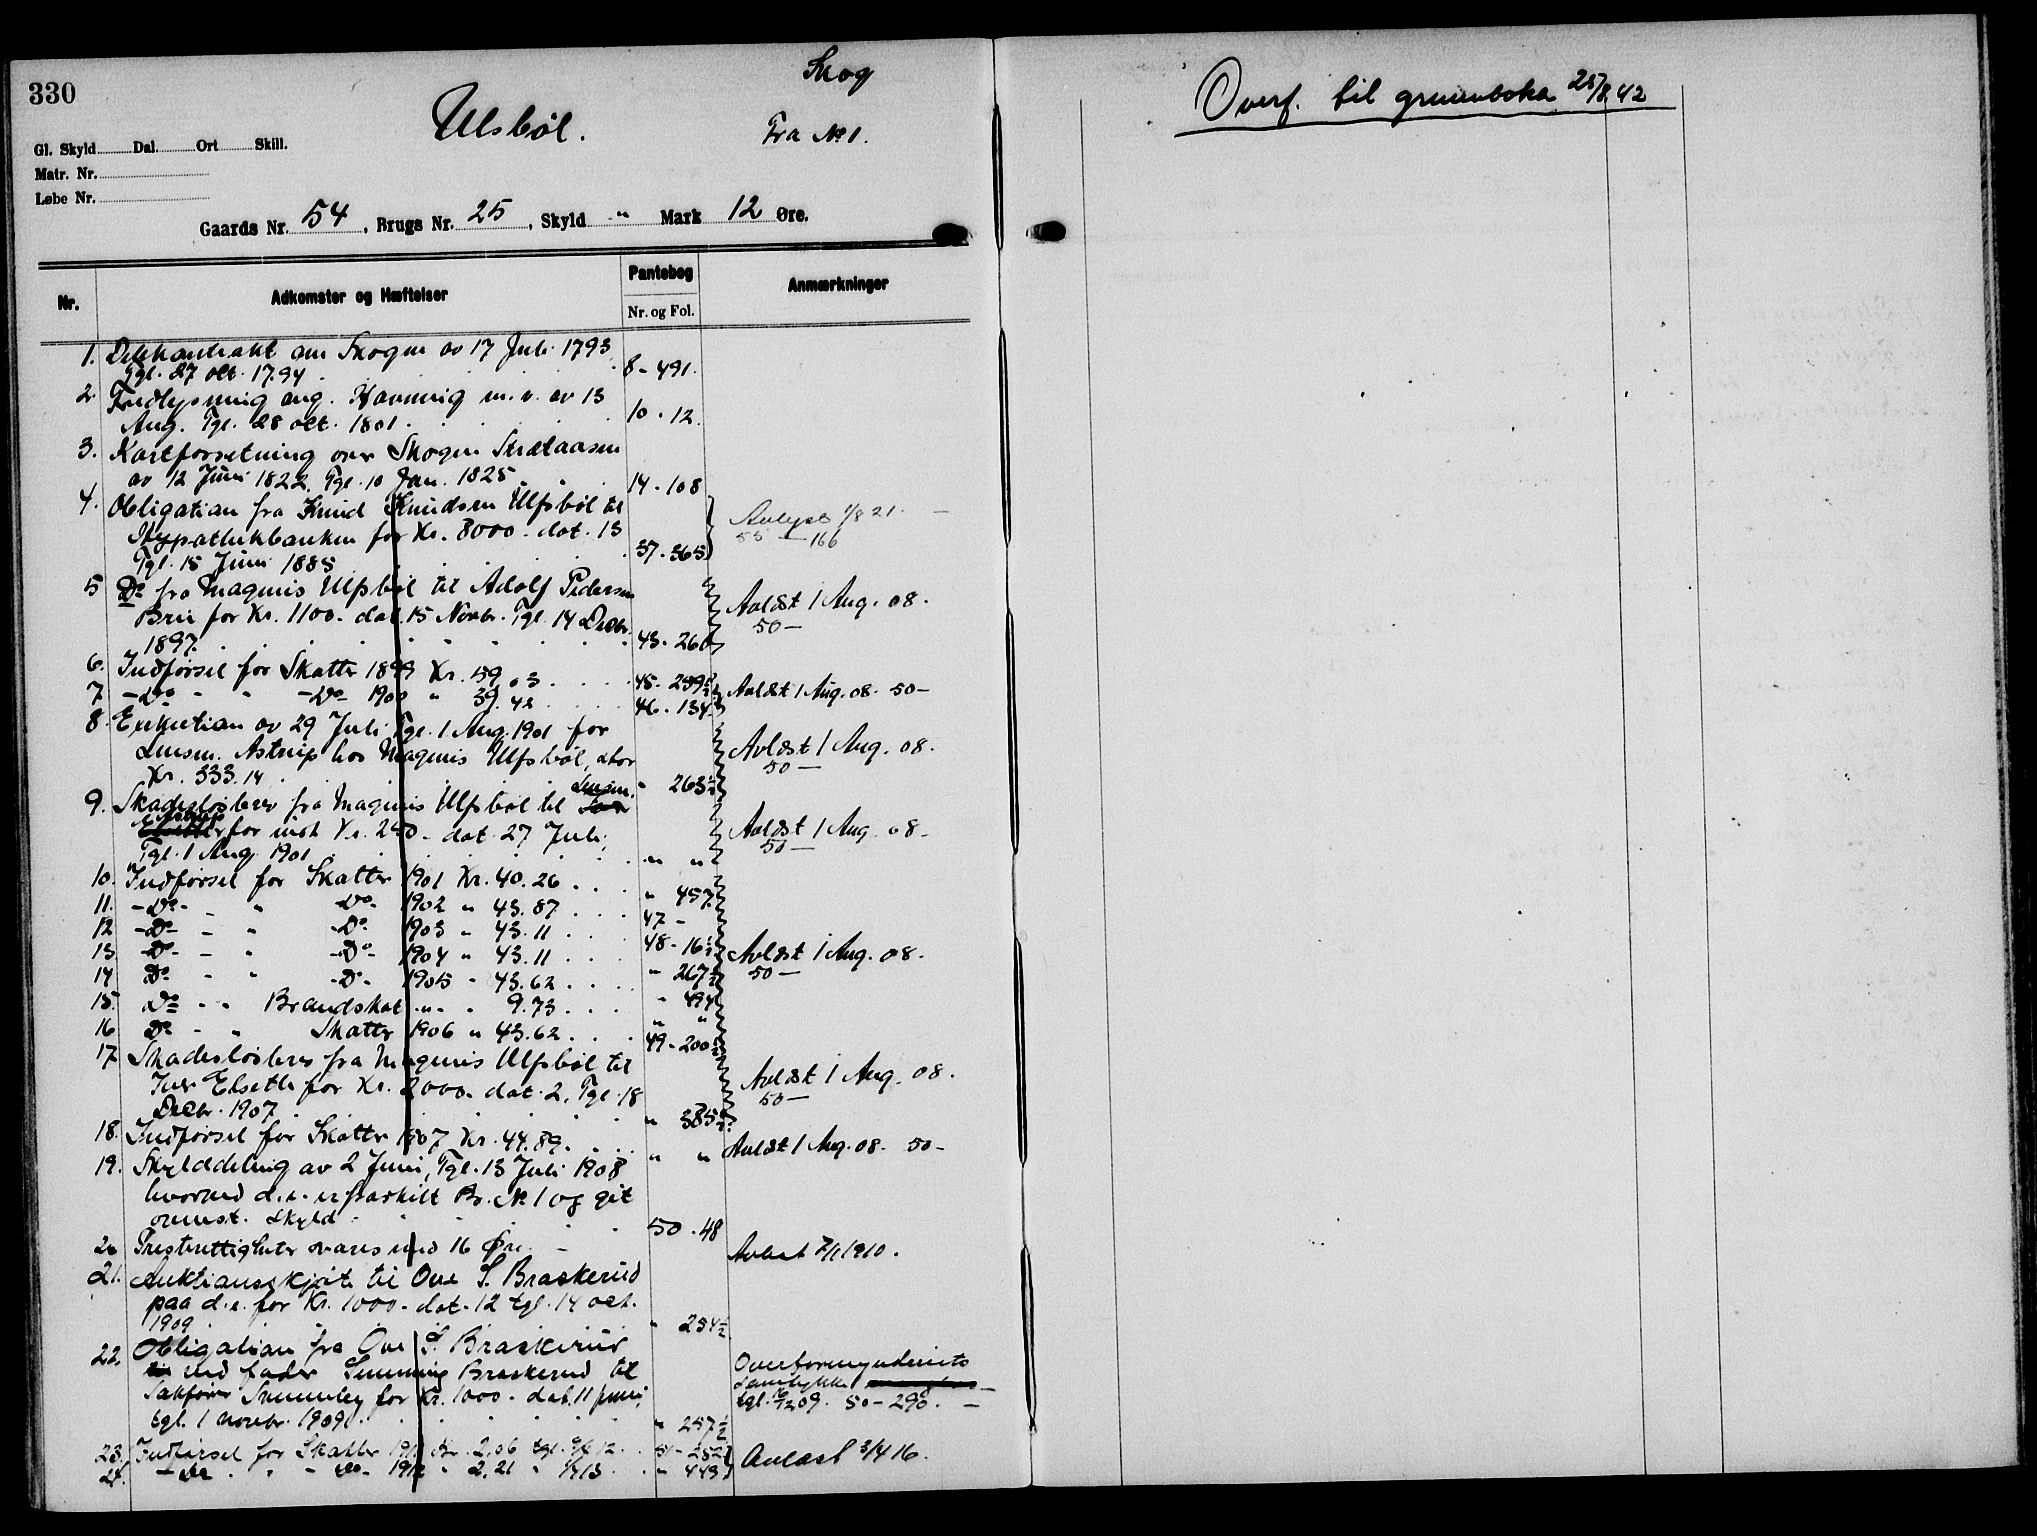 330
Skog
Ulsbøl.
Fra No 1.
Gl. Skyld Dal. Ort Skill.
Matr. Nr.
Løbe Nr.
Gaards Nr. 54, Brugs Nr. 25, Skyld " Mark 12 Øre.
Nr. Adkomster og Hæftelser Pantebog Anmærkninger
Nr. og Fol.
1. Delekontrakt om Skogen av 17 Juli 1793
Tgl. 27 okt. 1794 8-491.
2. Fredlysning ang. Havning m.v. av 13
Aug. Tgl. 28 okt. 1801. 10-12.
3. Kartforretning over Skogen
av 12 Juni 1822. Tgl. 10 Jan. 1825 14-108
4. Obligation fra Knud Knudsen Ulfsbøl til
Hypothekbanken for Kr. 8000. dat. 13
Tgl. 15 Juni 1885 37-365
Avlyst 1/8 21.
55 — 166
5 Do fra Magnus Ulfsbøl til Adolf Pedersen
Brie for Kr. 1100. dat. 15 Novbr. Tgl. 14 Decbr.
1897. 43-260
Avlæst 1 Aug. 08.
50 —
6. Indførsel for Skatter 1899 Kr. 59.03 45-259½
7 -Do- " -Do- 1900 " 39.42 46-134
Avlæst 1 Aug. 08. 50 —
8. Exekution av 29 Juli Tgl. 1 Aug. 1901 for
Lensm. Astrup hos Magnus Ulfsbøl, stor
Kr. 333.14 " 263½
Avlæst 1 Aug. 08.
50 —
9. Skadesløsbrev fra Magnus Ulfsbøl til Lensm.
Astrup for indt. Kr. 240. dat. 27 Juli,
Tgl. 1 Aug. 1901 " "
Avlæst 1 Aug. 08 —
50 —
10. Indførsel for Skatter 1901 Kr. 40.26 " 457
11. -Do- " Do- 1902 " 43.87 47 -
12 -Do- " -Do- 1903 " 43.11 48-16½
13 -Do- " -Do- 1904 " 43.11 " 267½
Avlæst 1 Aug. 08.
50 —
14 Do " -Do- 1905 " 43.62 " 494
15. Do " Brandskat " " 9.73 " "
16 Do " Skatter 1906 " 43.62 49-200½
17 Skadesløsbrev fra Magnus Ulfsbøl til
Iver Elseth for Kr. 2000. dat. 2. Tgl. 18
Decbr. 1907 " 385
Avlæst 1 Aug. 08.
50 —
18. Indførsel for Skatter 1907 Kr. 44.89. " "
Avlæst 1 Aug. 08. 50 —
19. Skylddeling av 2 Juni, Tgl. 13 Juli 1908
hvorved d. e. er fraskilt Br. No 1 og git
ovennst. skyld 50-48
20 Presterettigheter svares med 16 Øre.
Avløst 7/11 1910.
21. Auktionsskjøte til Ove S. Braskerud
paa d. e. for Kr. 1000. dat. 12 tgl. 14 oct.
1909 " 254½
22. Obligation fra Ove S. Braskerud
ved fader Simming Braskerud til
Sakfører for Kr. 1000. dat. 11 juni,
tgl. 1 novebr. 1909. " 257½
Overformynderiets
Samtykke
tgl. 16/12 09. 50-290. —
23. Indførsel for Skatter 1911 Kr. 2,06 tgl. 12 51-252
24. -Do " -Do- 1912 " 2,21 " 13 " 443
Avlæst 3/4 16.
Overf. til grunnboka 25/8 42